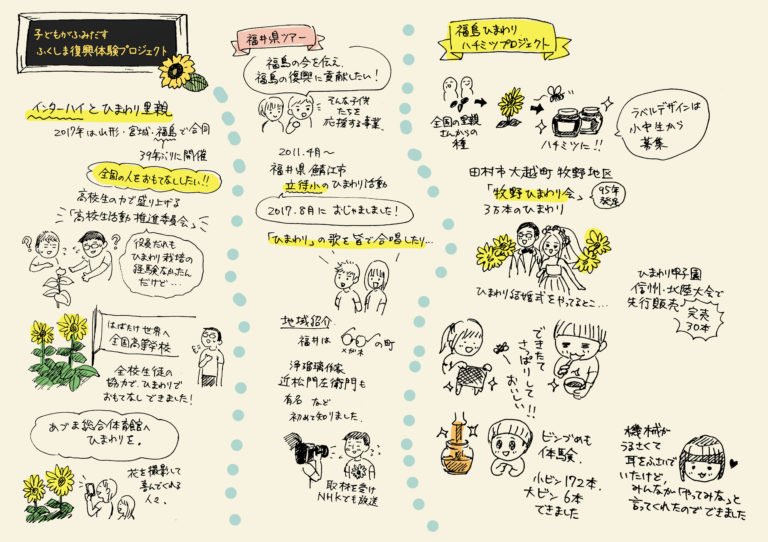 子どもがふみだす
ふくしま復興体験プロジェクト
インターハイとひまわり里親
2017年は山形・宮城・福島で合同
39年ぶりに開催
全国の人をおもてなししたい!!
高校生の力で盛り上げる
「高校生活動推進委員会」
役員だれも
ひまわり栽培の
経験なかったん
だけど…
はばたけ世界へ
全国高等学校
全校生徒の
協力で、ひまわりで
おもてなしできました!
あづま総合体育館へ
ひまわりを。
花を撮影して
喜んでくれる
人々。
福井県ツアー
福島の今を伝え、
福島の復興に貢献したい!
そんな子供
たちを
応援する事業。
2011.4月〜
福井県鯖江市
立待小のひまわり活動
2017.8月におじゃましました!
「ひまわり」の歌を皆で合唱したり…
地域紹介
福井は
メガネ
の町
浄瑠璃作家
近松門左衛門も
有名 など
初めて知りました。
取材を受け
NHKでも放送
福島ひまわり
ハチミツプロジェクト
全国の里親
さんからの
種
ハチミツに!!
ラベルデザインは
小中生から
募集
田村市大越町牧野地区
「牧野ひまわり会」
95年
発足
3万本のひまわり
ひまわり結婚式をやってるとこ…
ひまわり甲子園
信州・北陸大会で
先行販売
完売
30本
できたて
さっぱりして
おいしい!!
ビンづめも
体験。
小ビン172本、
大ビン6本
できました
機械が
うるさくて
耳をふさいで
いたけど、
みんなが「やってみな」と
言ってくれたのでできました